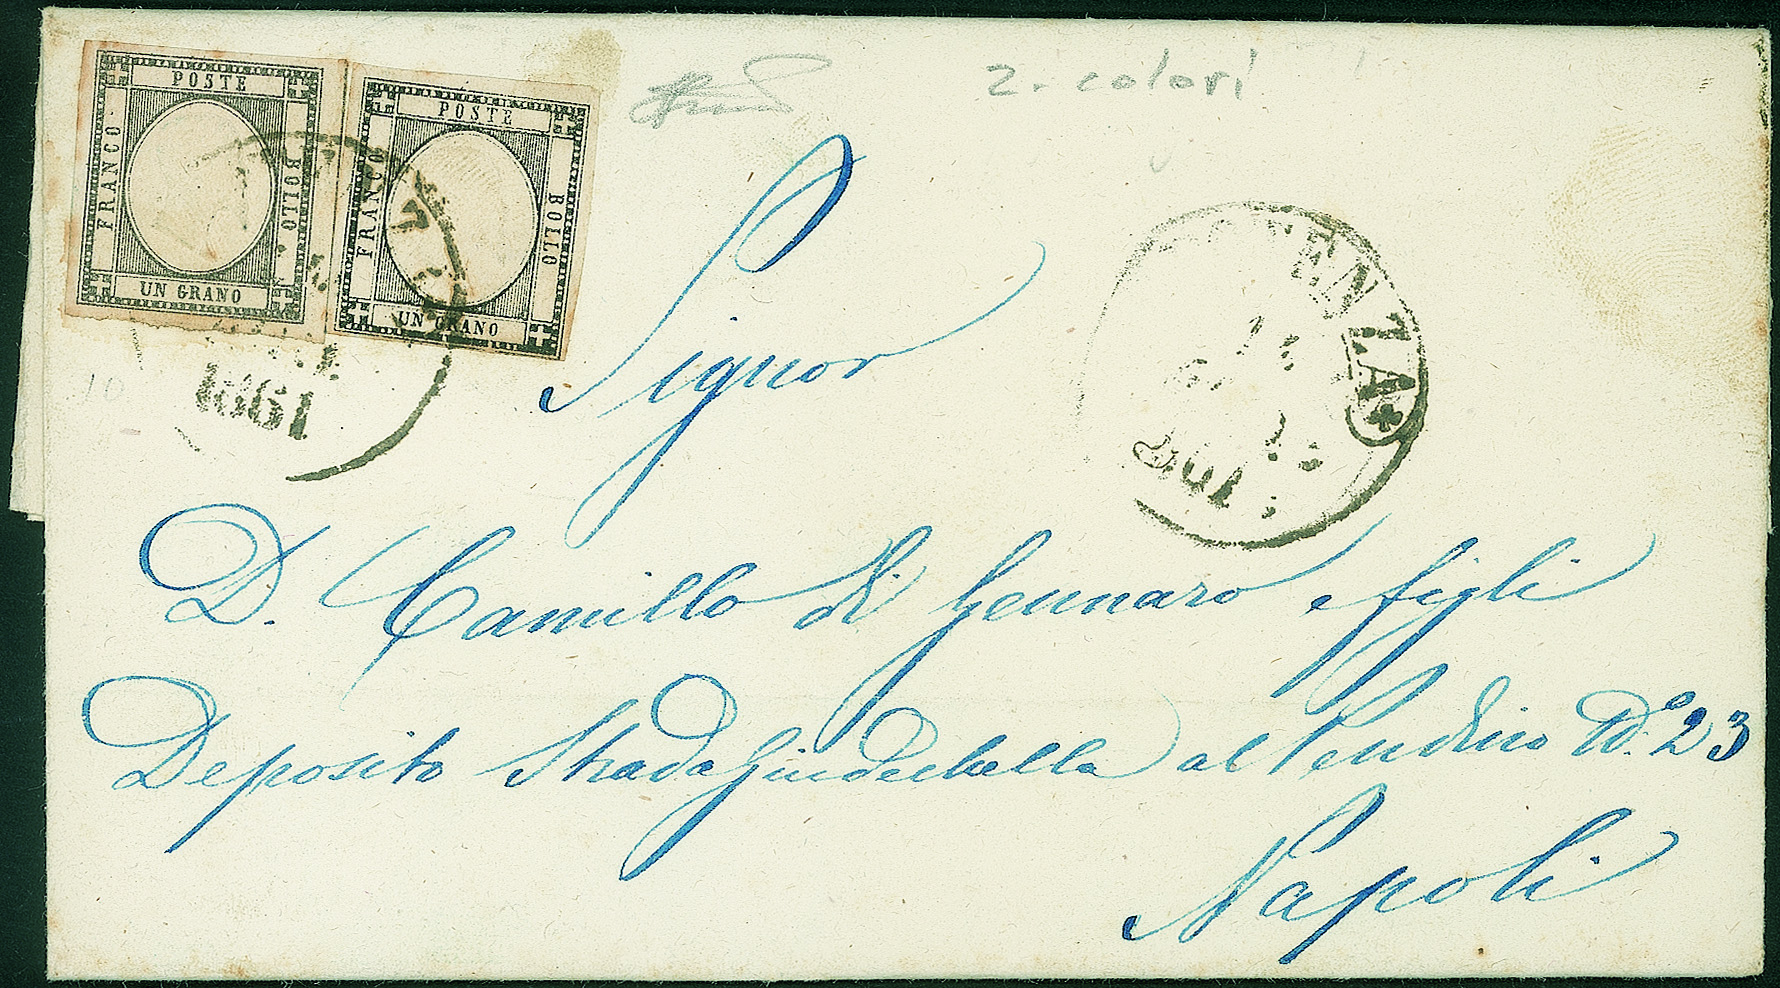 POSTE
FRANCO
BOLLO
UN GRANO
POSTE
FRANCO
BOLLO
UN GRANO
1861
2. colori
POTENZA
Signor
D. Camillo di Gennaro e figli
Deposito Strada Giudechella al Pendino No. 23
Napoli
10